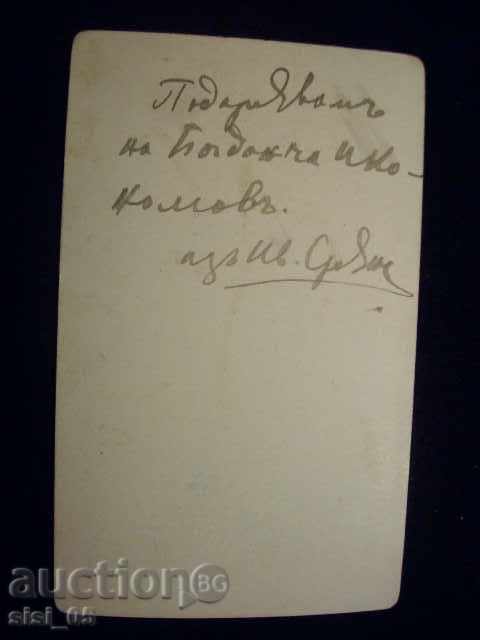 Подарявамъ
на Богданча Ико-
номовъ.
азъ Ив.
auction BG
sisi_05